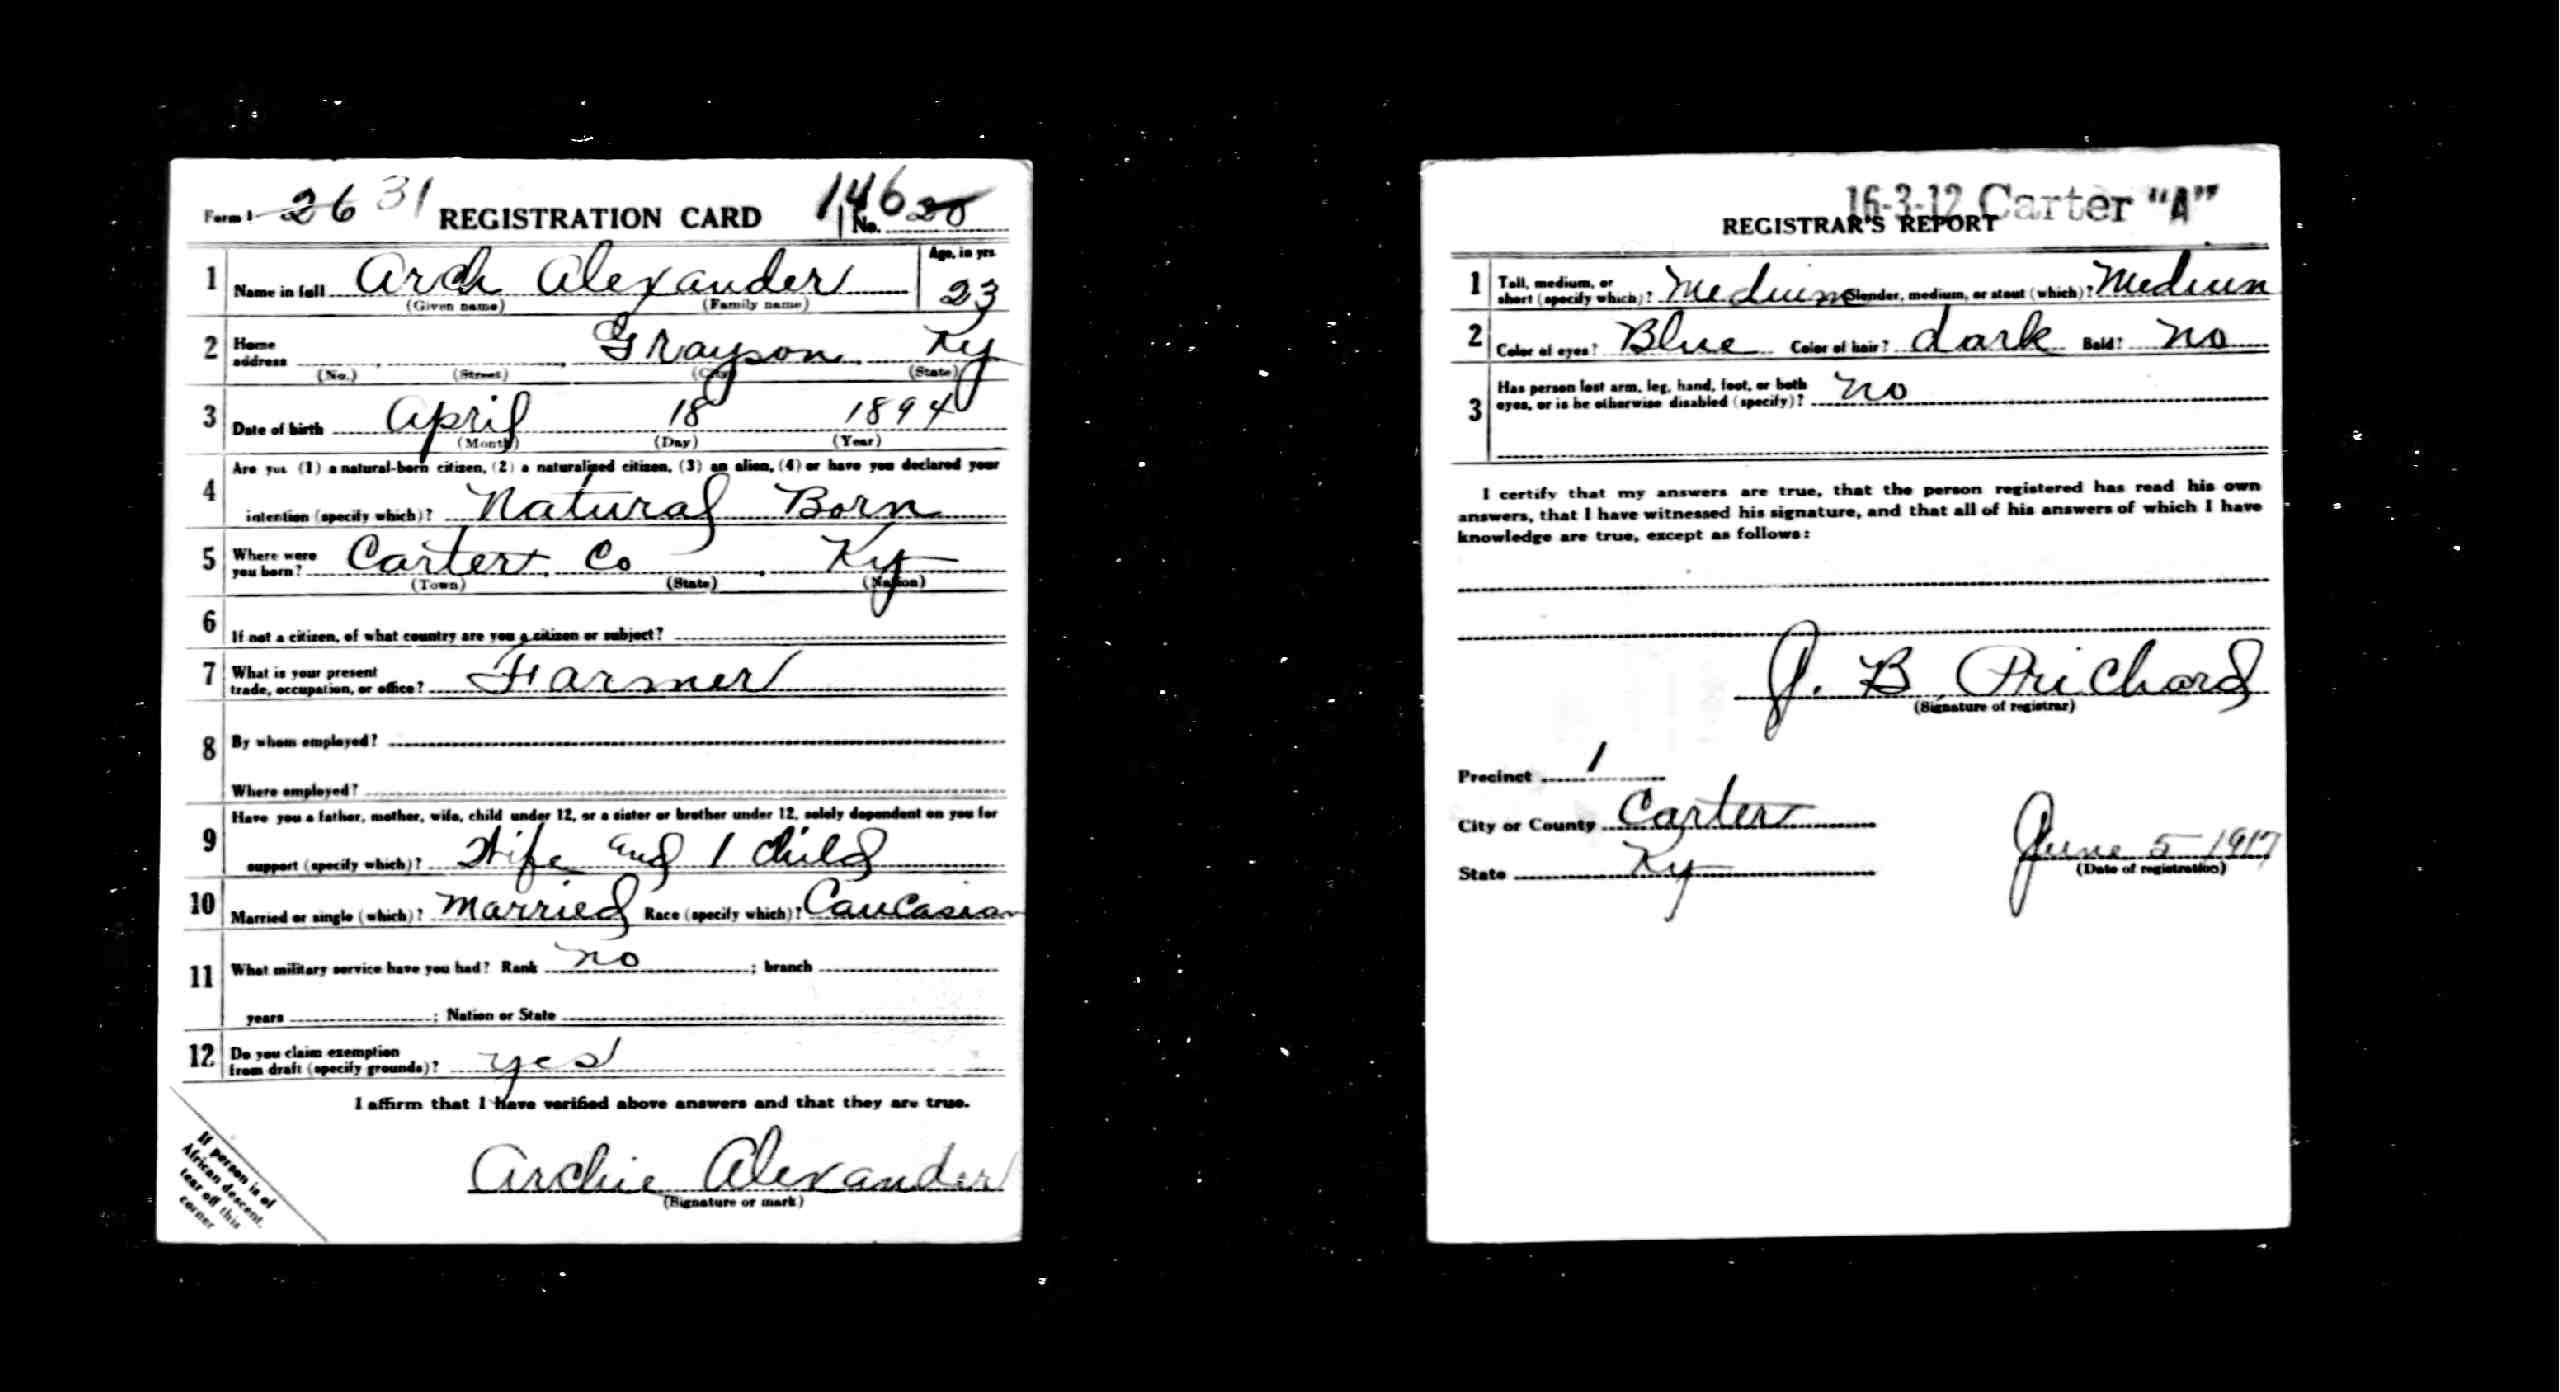 Form 1 26 31 REGISTRATION CARD 146 No. 20
1 Name in full Arch Alexander Age, in yrs 23
(Given name) (Family name)
2 Home address Grayson Ky
(No.) (Street) (City) (State)
3 Date of birth April 18 1894
(Month) (Day) (Year)
4 Are you (1) a natural-born citizen, (2) a naturalized citizen, (3) an alien, (4) or have you declared your
intention (specify which)? Natural Born
5 Where were you born? Carter Co Ky
(Town) (State) (Nation)
6 If not a citizen, of what country are you a citizen or subject?
7 What is your present
trade, occupation, or office? Farmer
8 By whom employed?
Where employed?
9 Have you a father, mother, wife, child under 12, or a sister or brother under 12, solely dependent on you for
support (specify which)? Wife and 1 child
10 Married or single (which)? Married Race (specify which)? Caucasian
11 What military service have you had? Rank no ; branch
years ; Nation or State
12 Do you claim exemption
from draft (specify grounds)? yes
I affirm that I have verified above answers and that they are true.
Archie Alexander
(Signature or mark)
If person is of
African descent,
tear off this
corner
16-3-12 Carter "A"
REGISTRAR'S REPORT
1 Tall, medium, or
short (specify which)? Medium Slender, medium, or stout (which)? Medium
2 Color of eyes? Blue Color of hair? dark Bald? no
3 Has person lost arm, leg, hand, foot, or both
eyes, or is he otherwise disabled (specify)? no
I certify that my answers are true, that the person registered has read his own
answers, that I have witnessed his signature, and that all of his answers of which I have
knowledge are true, except as follows:
J. B. Prichard
(Signature of registrar)
Precinct 1
City or County Carter
State Ky
June 5 1917
(Date of registration)